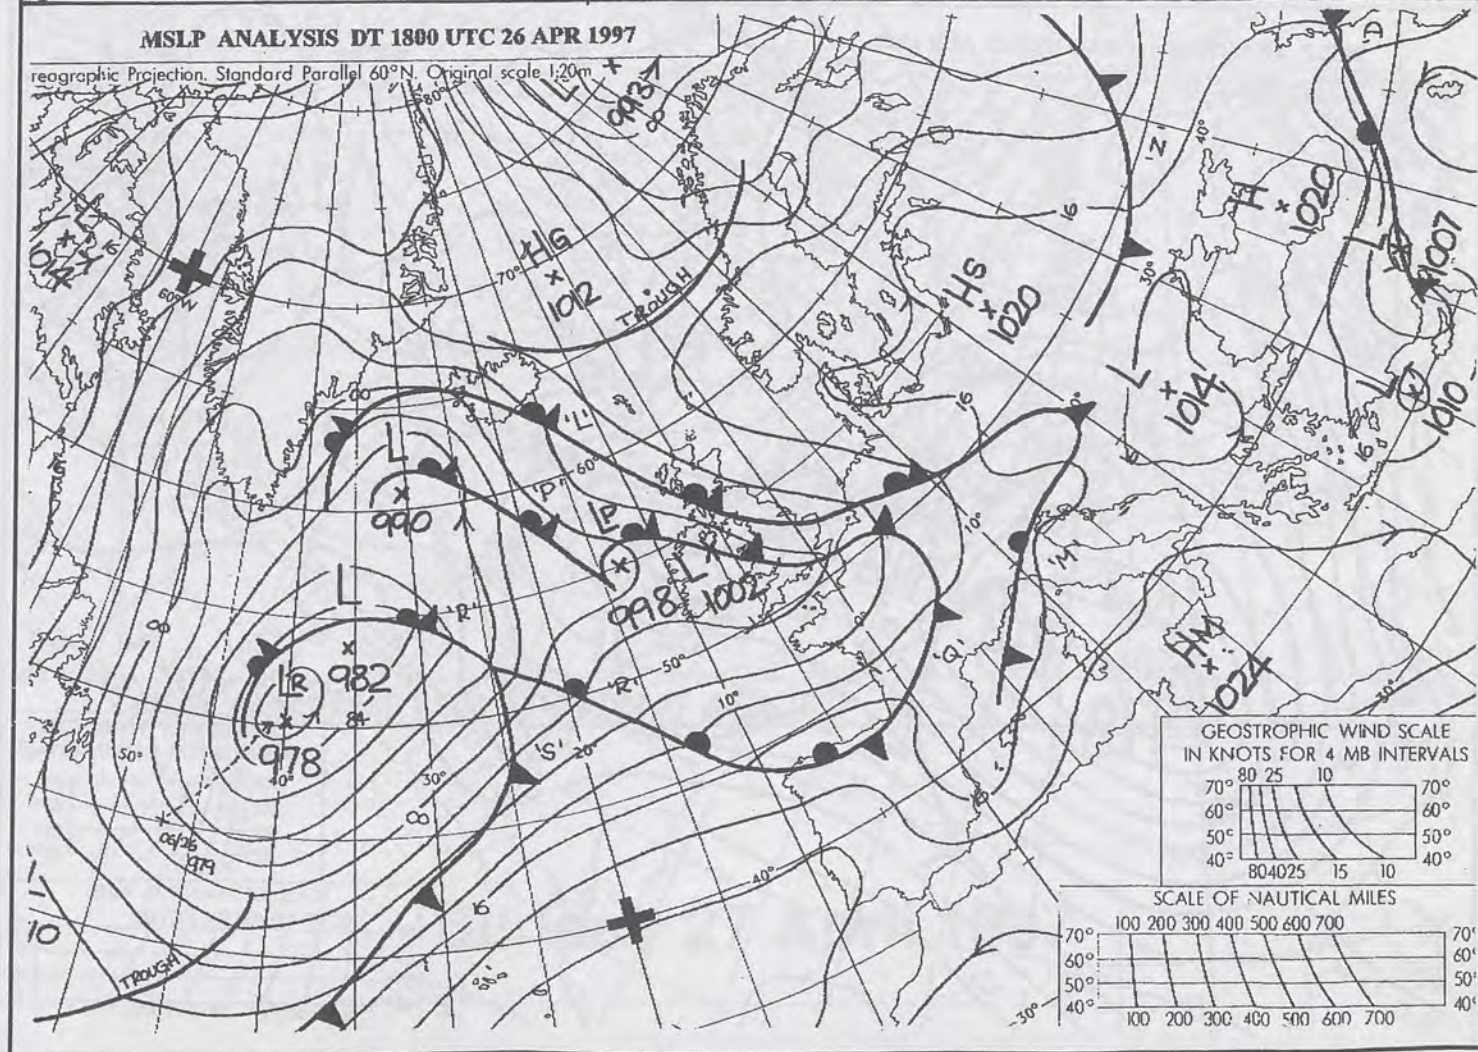 MSLP ANALYSIS DT 1800 UTC 26 APR 1997
reographic Projection. Standard Parallel 60°N. Original scale 1:20m
80°
L
993
8
'D'
'Z'
40°
H
1020
16
L
1007
L
60°W
HG
1012
70°
TROUGH
HS
1020
30°
L
1014
L
1010
16
16
00
L
990
'L'
60°
'P'
LP
998
L
1002
10°
0°
'M'
HM
1024
30°
8
L
982
'R'
LR
978
84
40°
50°
'R'
50°
10°
'Q'
'S'
20°
30°
8
06/26
979
16
16
40°
10
TROUGH
30°
GEOSTROPHIC WIND SCALE
IN KNOTS FOR 4 MB INTERVALS
80 25 10
70° 70°
60° 60°
50° 50°
40° 40°
804025 15 10
SCALE OF NAUTICAL MILES
100 200 300 400 500 600 700
70° 70°
60° 60°
50° 50°
40° 40°
100 200 300 400 500 600 700